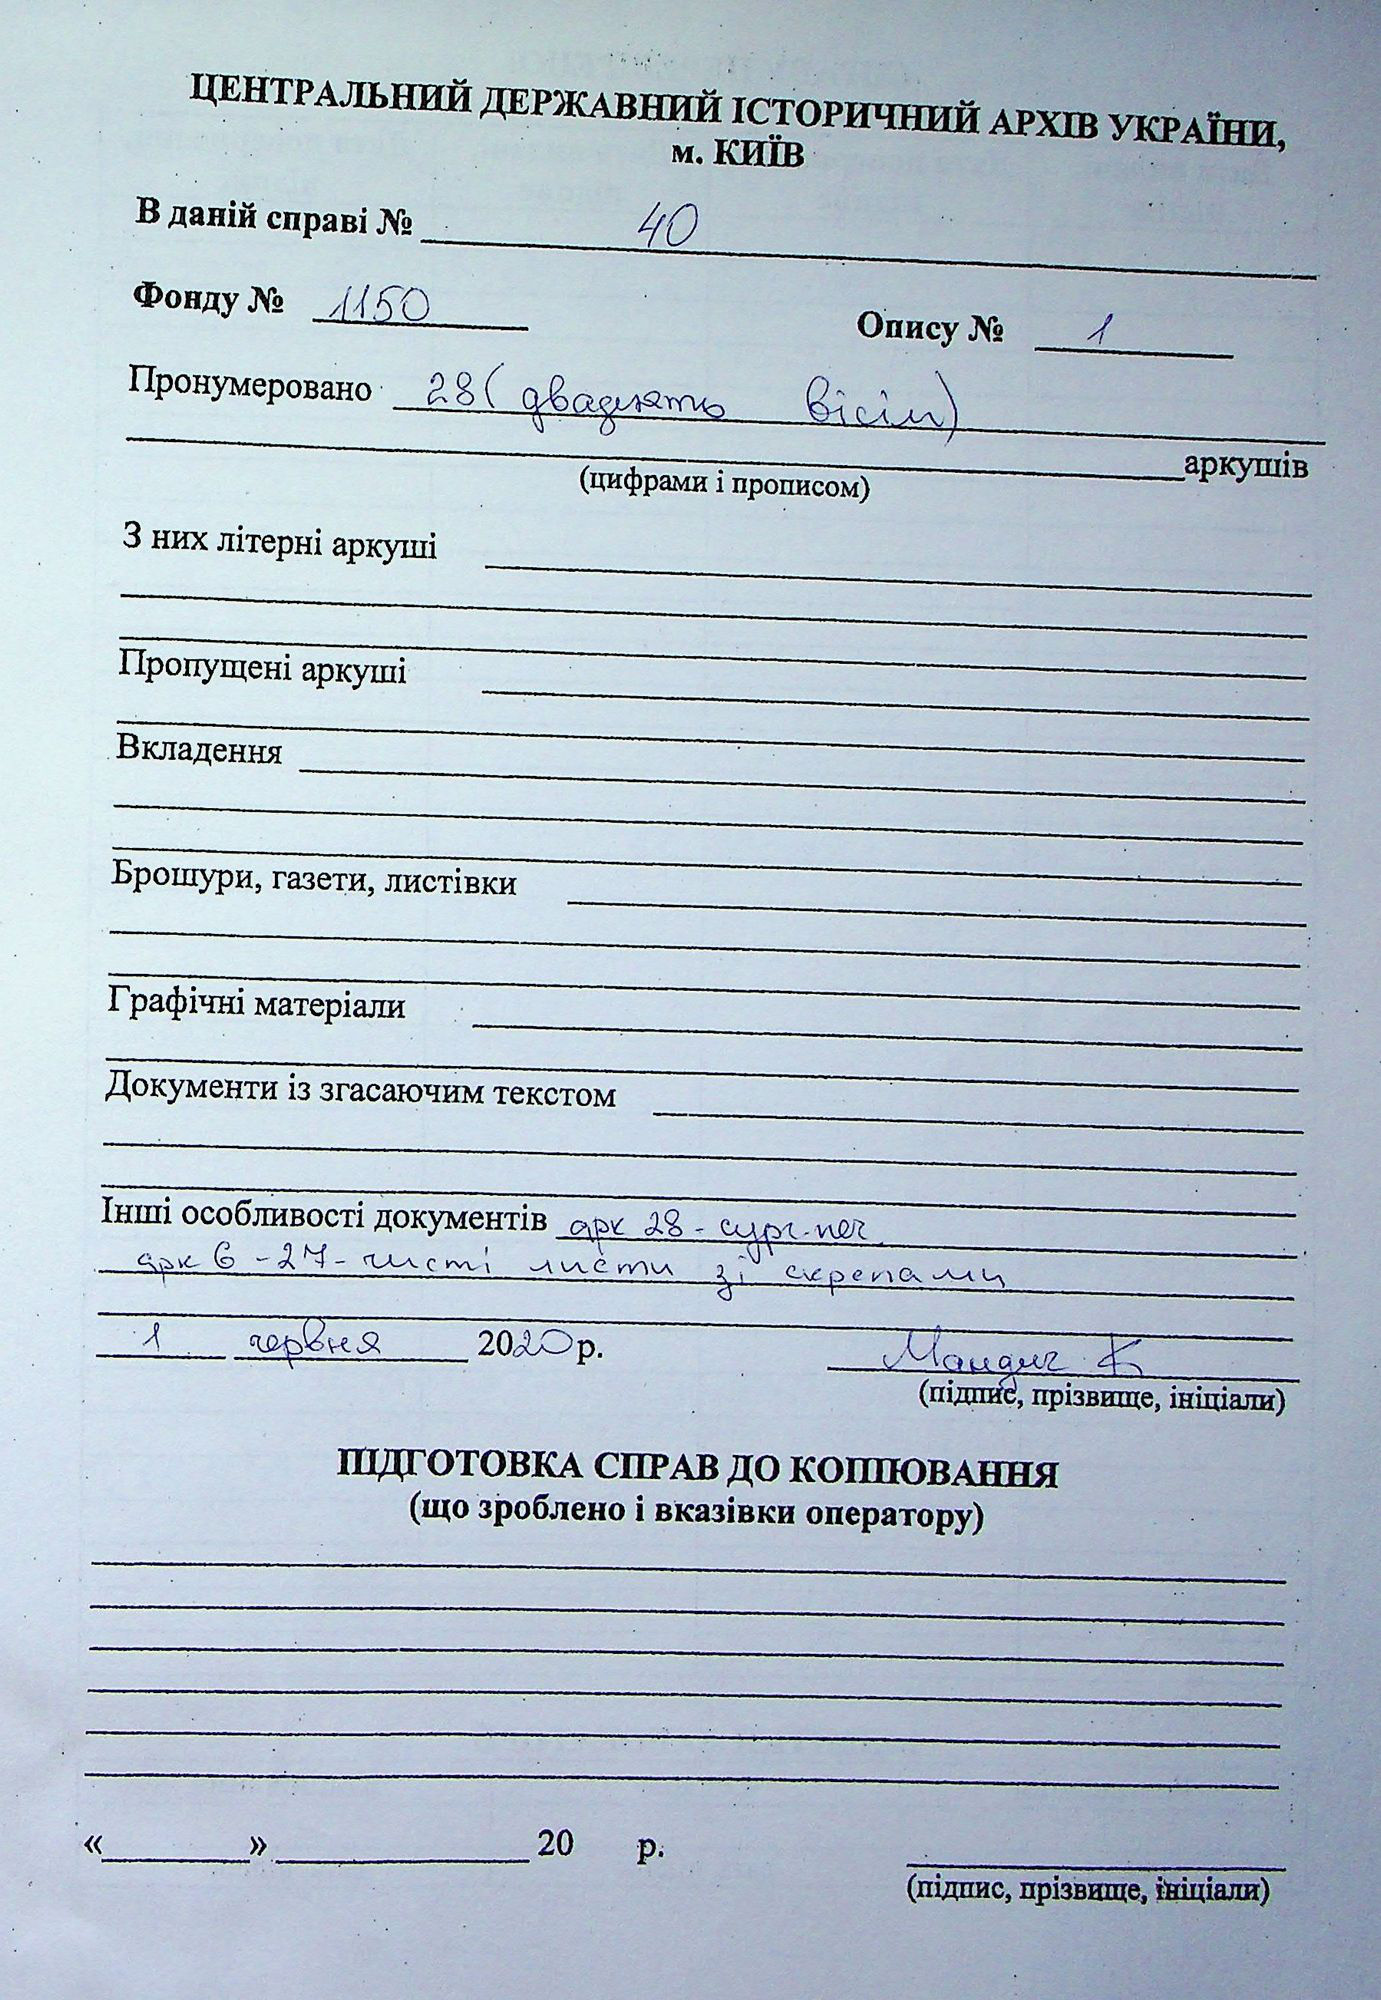 ЦЕНТРАЛЬНИЙ ДЕРЖАВНИЙ ІСТОРИЧНИЙ АРХІВ УКРАЇНИ,
м. КИЇВ
В даній справі № 40
Фонду № 1150 Опису № 1
Пронумеровано 28 (двадцять вісім)
аркушів
(цифрами і прописом)
З них літерні аркуші
Пропущені аркуші
Вкладення
Брошури, газети, листівки
Графічні матеріали
Документи із згасаючим текстом
Інші особливості документів арк 28 - сург. печ.
арк 6 - 27 - чисті листи зі скрепами
1 червня 2020 р. Мандич К
(підпис, прізвище, ініціали)
ПІДГОТОВКА СПРАВ ДО КОПІЮВАННЯ
(що зроблено і вказівки оператору)
« » 20 р.
(підпис, прізвище, ініціали)